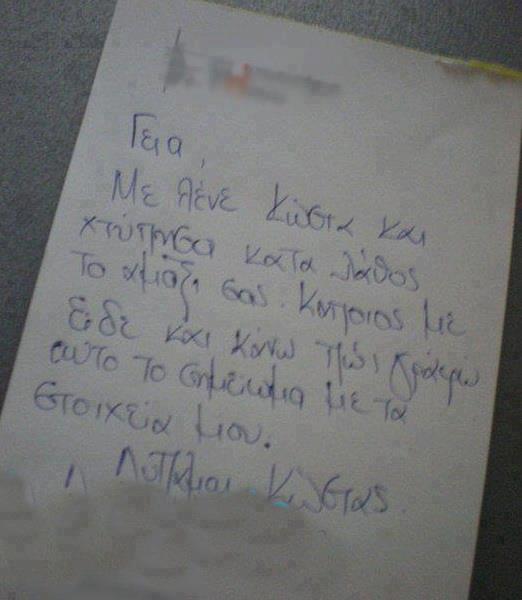 Γεια,
Με λένε Κώστα και
χτύπησα κατα λάθος
το αμάξι σας. Κάποιος με
είδε και κάνω πώς γράφω
αυτο το σημείωμα με τα
στοιχεία μου.
Λυπάμαι Κώστας